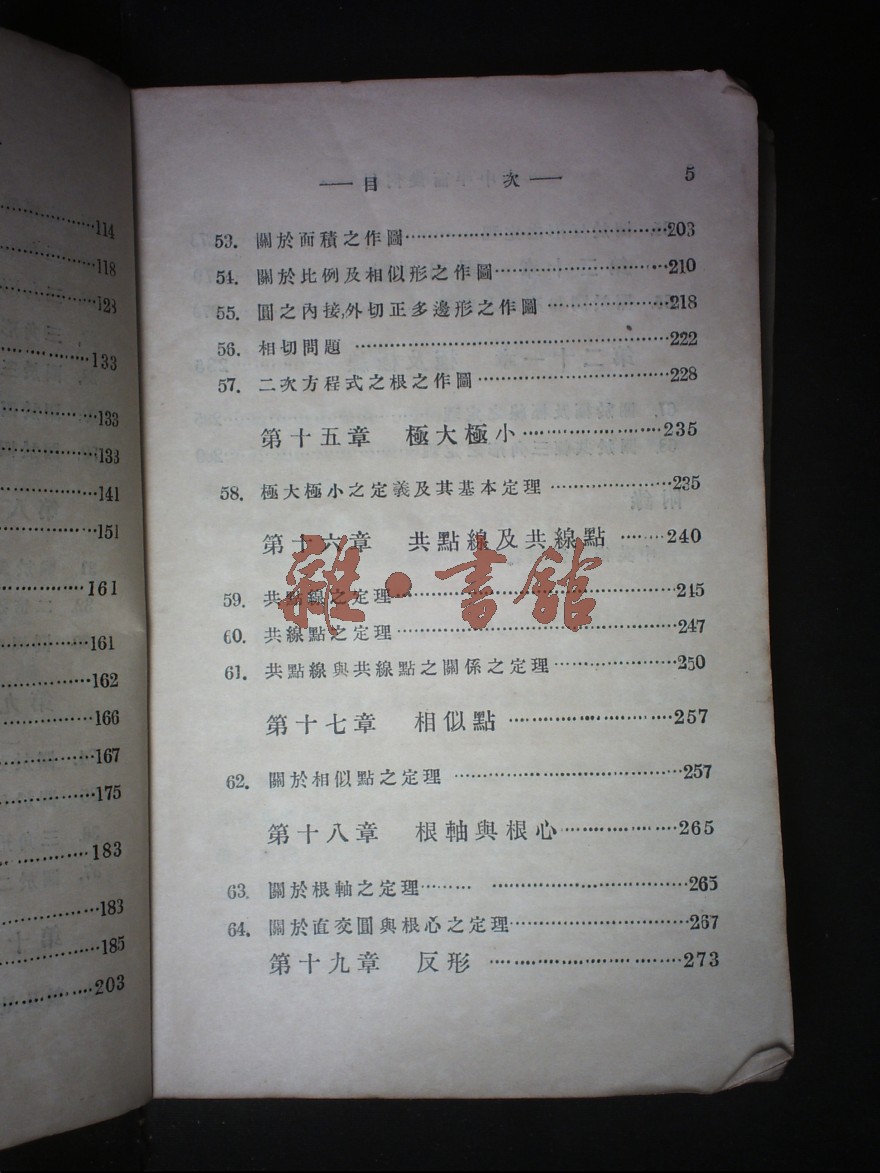 114
118
123
133
133
133
141
151
161
161
162
166
167
175
183
183
185
203
── 目 次 ── 5
53. 關於面積之作圖……203
54. 關於比例及相似形之作圖……210
55. 圓之內接,外切正多邊形之作圖……218
56. 相切問題……222
57. 二次方程式之根之作圖……228
第十五章 極大極小……235
58. 極大極小之定義及其基本定理……235
第十六章 共點線及共線點……240
59. 共點線之定理……245
60. 共線點之定理……247
61. 共點線與共線點之關係之定理……250
第十七章 相似點……257
62. 關於相似點之定理……257
第十八章 根軸與根心……265
63. 關於根軸之定理……265
64. 關於直交圓與根心之定理……267
第十九章 反形……273
雜·書館